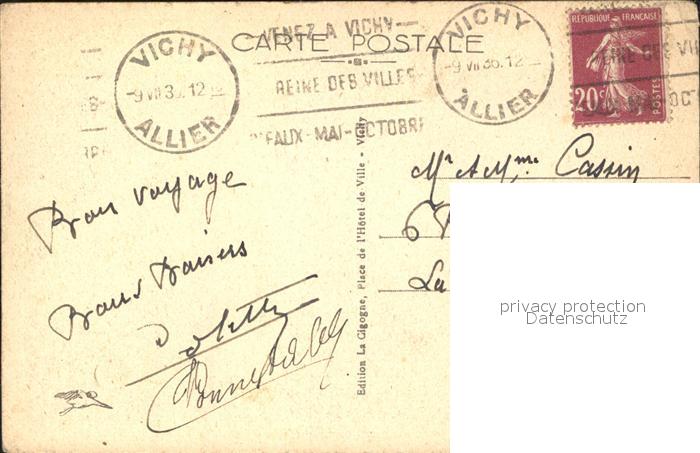 CARTE POSTALE
VICHY
-9 VII 3 . 12
ALLIER
VENEZ A VICHY
REINE DES VILLES
EAUX-MAI-OCTOBRE
VICHY
-9 VII 36. 12
ALLIER
RÉPUBLIQUE FRANÇAISE
20c
POSTES
Mr & Mme Cassin
6
La
Bon voyage
Bons Baisers
Edition La Cigogne, Place de l'Hôtel de Ville - Vichy
privacy protection
Datenschutz